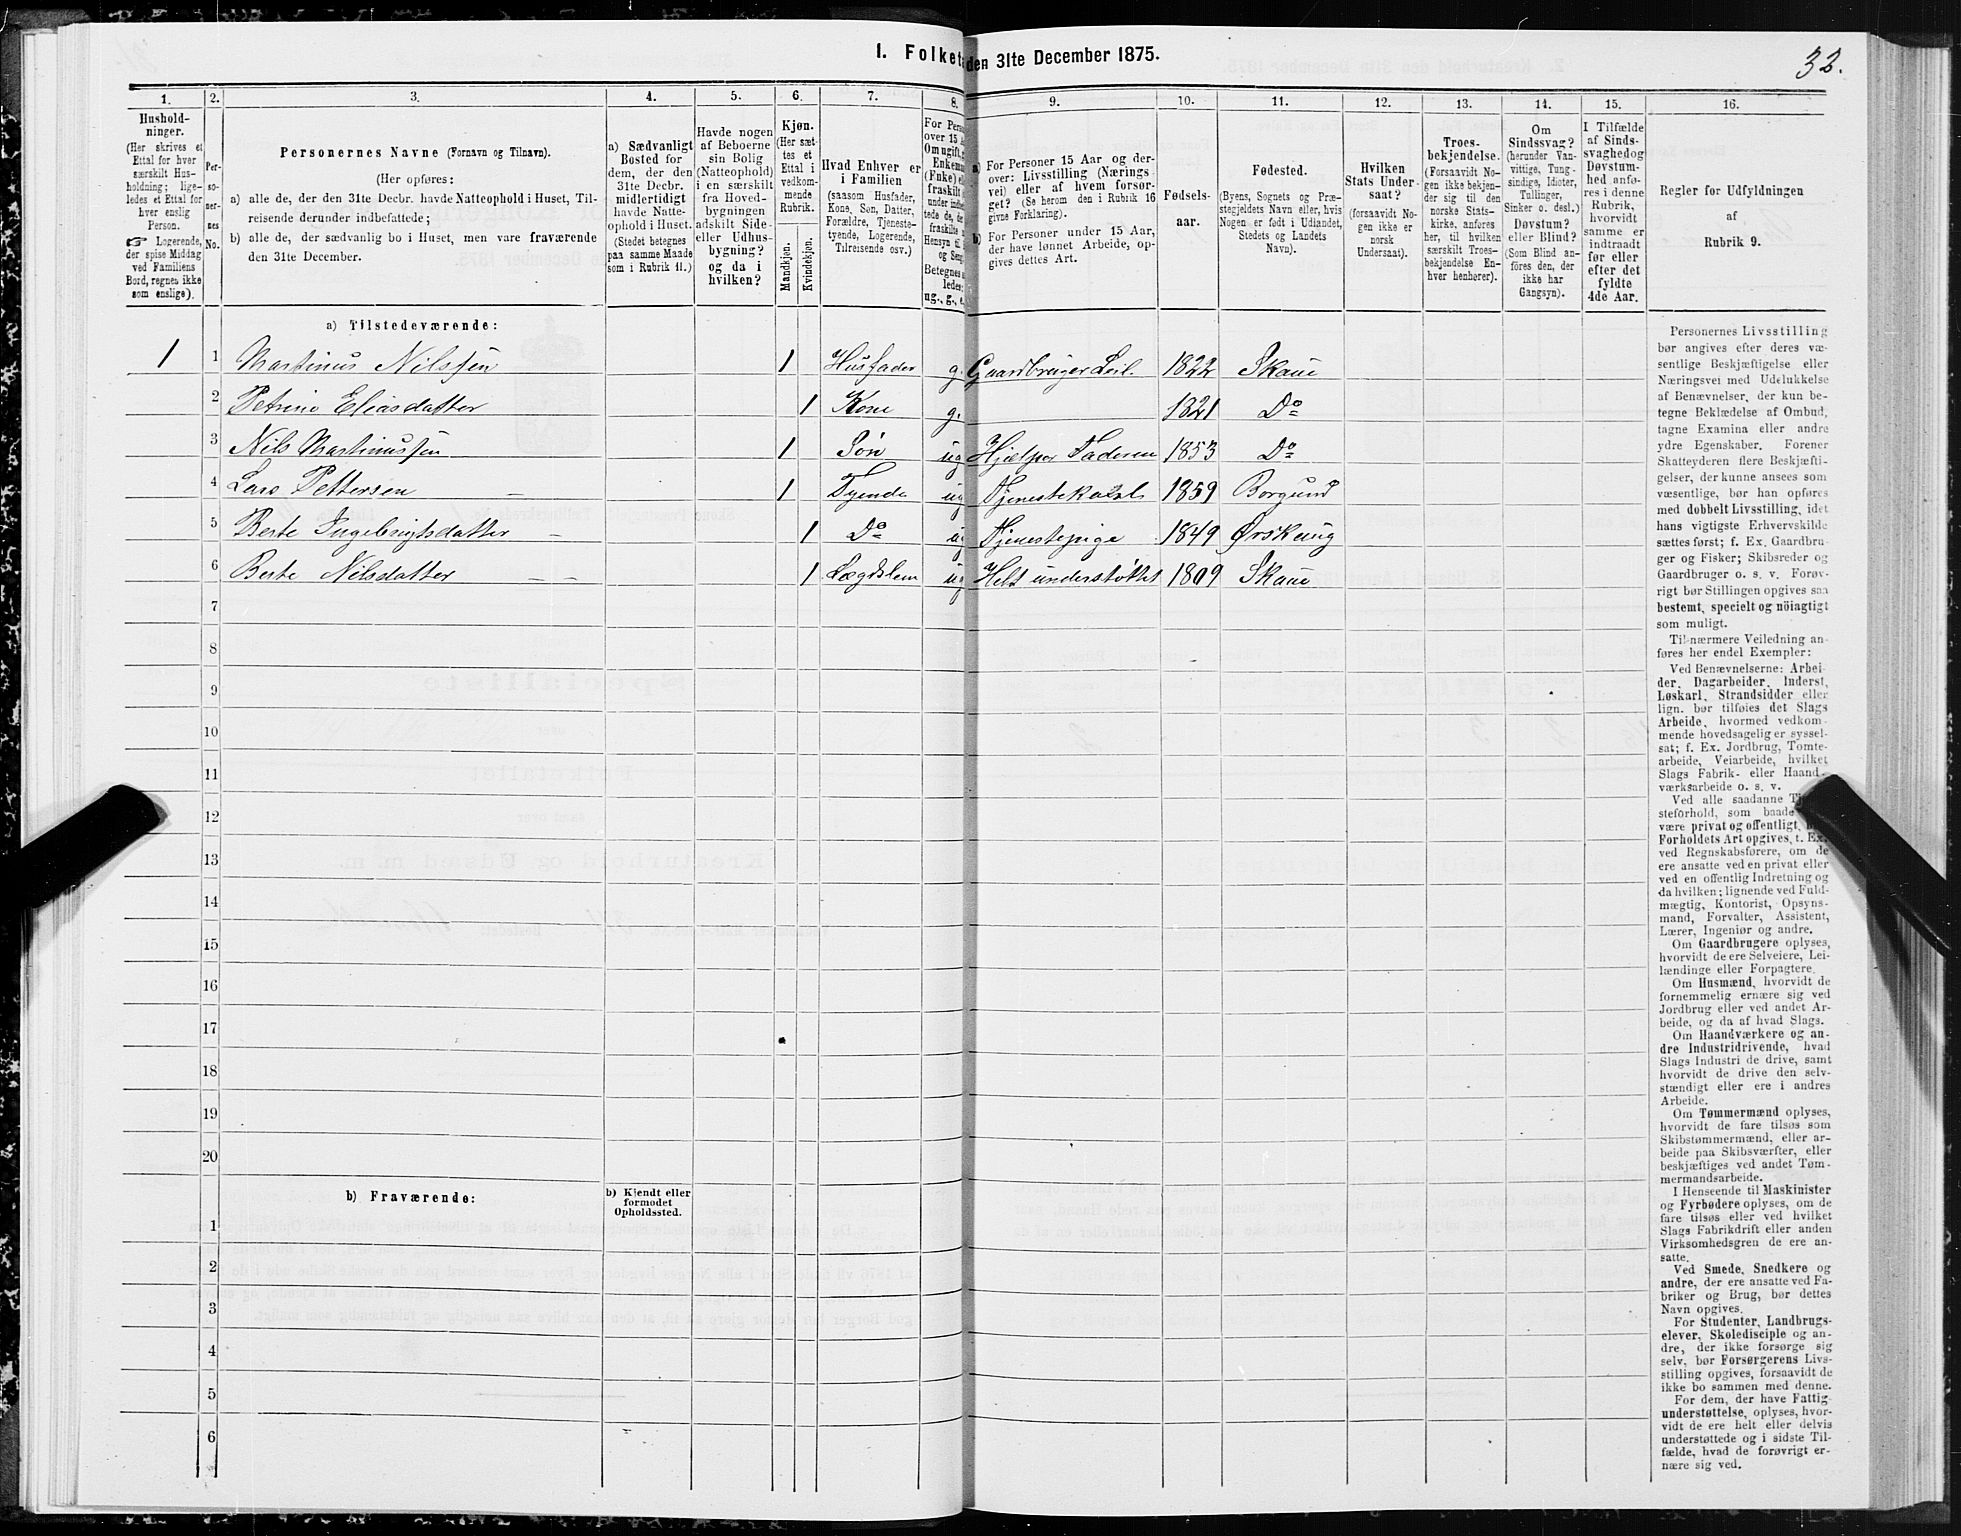 I. Folketa den 31te December 1875.
32.
1. 2. 3. 4. 5. 6. 7. 8. 9. 10. 11. 12. 13. 14. 15. 16.
Hushold-
ninger.
(Her skrives et
Ettal for hver
særskilt Hus-
holdning; lige-
ledes et Ettal for
hver enslig
Person.
☞ Logerende,
der spise Middag
ved Familiens
Bord, regnes ikke
som enslige).
Per-
so-
ner-
nes
No.
Personernes Navne (Fornavn og Tilnavn).
(Her opføres:
a) alle de, der den 31te Decbr. havde Natteophold i Huset, Til-
reisende derunder indbefattede;
b) alle de, der sædvanlig bo i Huset, men vare fraværende
den 31te December.
a) Sædvanligt
Bosted for
dem, der den
31te Decbr.
midlertidigt
havde Natte-
ophold i Huset.
(Stedet betegnes
paa samme Maade
som i Rubrik 11.)
Havde nogen
af Beboerne
sin Bolig
(Natteophold)
i en særskilt
fra Hoved-
bygningen
adskilt Side-
eller Udhus-
bygning?
og da i
hvilken?
Kjøn.
(Her sæt-
tes et
Ettal i
vedkom-
mende
Rubrik.
Mandkjøn.
Kvindekjøn.
Hvad Enhver er
i Familien
(saasom Husfader,
Kone, Søn, Datter,
Forældre, Tjeneste-
tyende, Logerende,
Tilreisende osv.)
For Pers
over 15 A
Om ugift, g
Enkem
(Enke) e
fraskilt
under indbe
tede de, de
fraskilte
Hensyn til
og Seng
Betegnes
ledes:
ug., g., e.
a) For Personer 15 Aar og der-
over: Livsstilling (Nærings
vei) eller af hvem forsør-
get? (Se herom den i Rubrik 16
givne Forklaring).
b) For Personer under 15 Aar,
der have lønnet Arbeide, op-
gives dettes Art.
Fødsels-
aar.
Fødested.
(Byens, Sognets og Præ-
stegjeldets Navn eller, hvis
Nogen er født i Udlandet,
Stedets og Landets
Navn).
Hvilken
Stats Under-
saat?
(forsaavidt No-
gen ikke er
norsk
Undersaat).
Troes-
bekjendelse.
(Forsaavidt No-
gen ikke bekjen-
der sig til den
norske Stats-
kirke, anføres
her, til hvilken
særskilt Troes-
bekjendelse En-
hver henhører).
Om
Sindssvag?
(herunder Van-
vittige, Tung-
sindige, Idioter,
Tullinger,
Sinker o. desl.)
Døvstum?
eller Blind?
(Som Blind an-
føres den, der
ikke har
Gangsyn).
I Tilfælde
af Sinds-
svaghed og
Døvstum-
hed anfø-
res i denne
Rubrik,
hvorvidt
samme er
indtraadt
før eller
efter det
fyldte
4de Aar.
Regler for Udfyldningen
af
Rubrik 9.
a) Tilstedeværende:
1 1 Martinus Nilssen 1 Husfader g. Gaardbruger Leil. 1822 Skaue
2 Petrine Eliasdatter 1 Kone g. 1821 Do
3 Nils Martinussen 1 Søn ug Hjælper Faderen 1853 Do
4 Lars Pettersen 1 Tyende ug Tjenestekarl 1859 Borgund
5 Berte Ingebrigtsdatter 1 Do ug Tjenestepige 1849 Ørskoug
6 Berte Nilsdatter 1 Lægdslem ug Helt understøttet 1809 Skaue
7
8
9
10
11
12
13
14
15
16
17
18
19
20
b) Fraværende:
b) Kjendt eller
formodet
Opholdssted.
1
2
3
4
5
6
Personernes Livsstilling
bør angives efter deres væ-
sentlige Beskjæftigelse eller
Næringsvei med Udelukkelse
af Benævnelser, der kun be-
tegne Beklædelse af Ombud,
tagne Examina eller andre
ydre Egenskaber. Forener
Skatteyderen flere Beskjæfti-
gelser, der kunne ansees som
væsentlige, bør han opføres
med dobbelt Livsstilling, idet
hans vigtigste Erhvervskilde
sættes først; f. Ex. Gaardbru-
ger og Fisker; Skibsreder og
Gaardbruger o. s. v. Forøv-
rigt bør Stillingen opgives saa
bestemt, specielt og nöiagtigt
som muligt.
Til nærmere Veiledning an-
føres her endel Exempler:
Ved Benævnelserne: Arbei-
der, Dagarbeider, Inderst,
Løskarl, Strandsidder eller
lign. bør tilføies det Slags
Arbeide, hvormed vedkom-
mende hovedsagelig er syssel-
sat; f. Ex. Jordbrug, Tomte-
arbeide, Veiarbeide, hvilket
Slags Fabrik- eller Haand-
værksarbeide o. s. v.
Ved alle saadanne Tj
steforhold, som baade
være privat og offentligt,
Forholdets Art opgives, f. Ex.
ved Regnskabsførere, om de
ere ansatte ved en privat eller
ved en offentlig Indretning og
da hvilken; lignende ved Fuld-
mægtig, Kontorist, Opsyns-
mand, Forvalter, Assistent,
Lærer, Ingeniør og andre.
Om Gaardbrugere oplyses,
hvorvidt de ere Selveiere, Lei-
lændinge eller Forpagtere.
Om Husmænd, hvorvidt de
fornemmelig ernære sig ved
Jordbrug eller ved andet Ar-
beide, og da af hvad Slags.
Om Haandværkere og an-
dre Industridrivende, hvad
Slags Industri de drive, samt
hvorvidt de drive den selv-
stændigt eller ere i andres
Arbeide.
Om Tømmermænd oplyses,
hvorvidt de fare tilsøs som
Skibstømmermænd, eller ar-
beide paa Skibsværfter, eller
beskjæftiges ved andet Tøm-
mermandsarbeide.
I Henseende til Maskinister
og Fyrbødere oplyses, om de
fare tilsøs eller ved hvilket
Slags Fabrikdrift eller anden
Virksomhedsgren de ere an-
satte.
Ved Smede, Snedkere og
andre, der ere ansatte ved Fa-
briker og Brug, bør dettes
Navn opgives.
For Studenter, Landbrugs-
elever, Skoledisciple og an-
dre, der ikke forsørge sig
selv, bør Forsørgerens Livs-
stilling opgives, forsaavidt de
ikke bo sammen med denne.
For dem, der have Fattig-
understøttelse, oplyses, hvor-
vidt de ere helt eller delvis
understøttede og i sidste Til-
fælde, hvad de forøvrigt er-
nære sig ved.